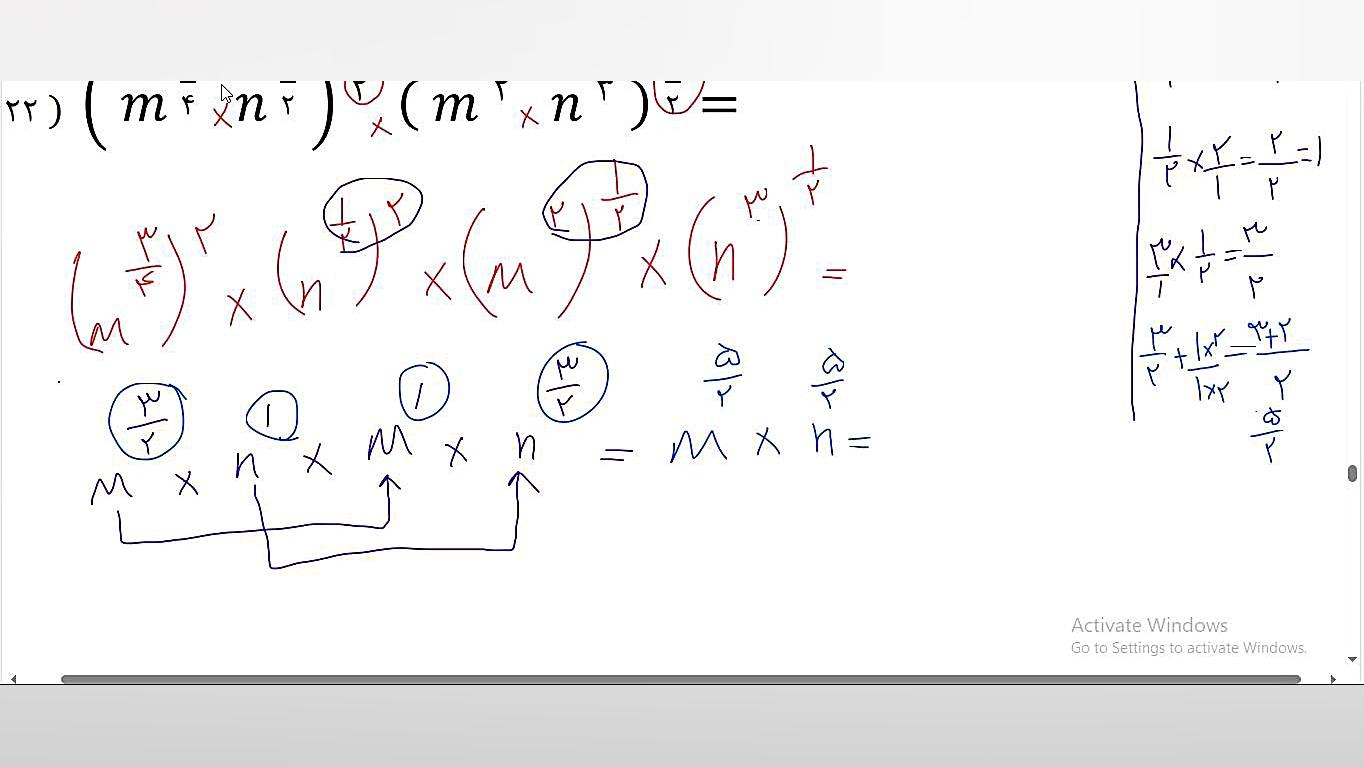 ۲۲) (m^{۴} × n^{۲})^{۲} × (m^{۲} × n^{۳})^{۲} =
(m^{۳/۴})^{۲} × (n^{۱/۲})^{۲} × (m^{۲})^{۱/۲} × (n^{۳})^{۱/۲} =
m^{۳/۲} × n^{۱} × m^{۱} × n^{۳/۲} = m^{۵/۲} × n^{۵/۲} =
۱/۲ × ۲/۱ = ۲/۲ = ۱
۳/۱ × ۱/۲ = ۳/۲
۳/۲ + ۱×۲/۱×۲ = ۳+۲/۲
۵/۲
Activate Windows
Go to Settings to activate Windows.